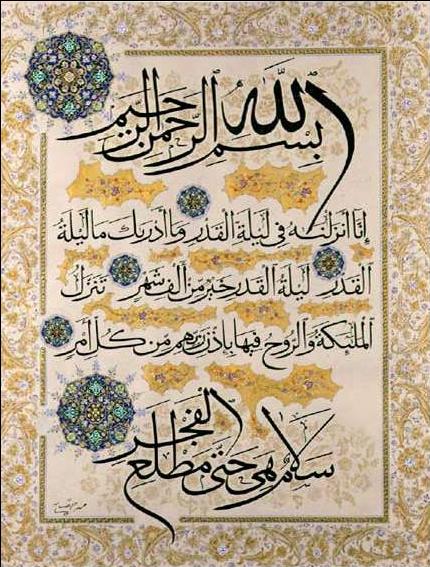 بِسْمِ اللَّهِ الرَّحْمٰنِ الرَّحِيمِ
إِنَّا أَنْزَلْنَاهُ فِي لَيْلَةِ الْقَدْرِ وَمَا أَدْرَيكَ مَا لَيْلَةُ
الْقَدْرِ لَيْلَةُ الْقَدْرِ خَيْرٌ مِنْ أَلْفِ شَهْرٍ تَنَزَّلُ
الْمَلٰئِكَةُ وَالرُّوحُ فِيهَا بِإِذْنِ رَبِّهِمْ مِنْ كُلِّ أَمْرٍ
سَلَامٌ هِيَ حَتَّى مَطْلَعِ الْفَجْرِ